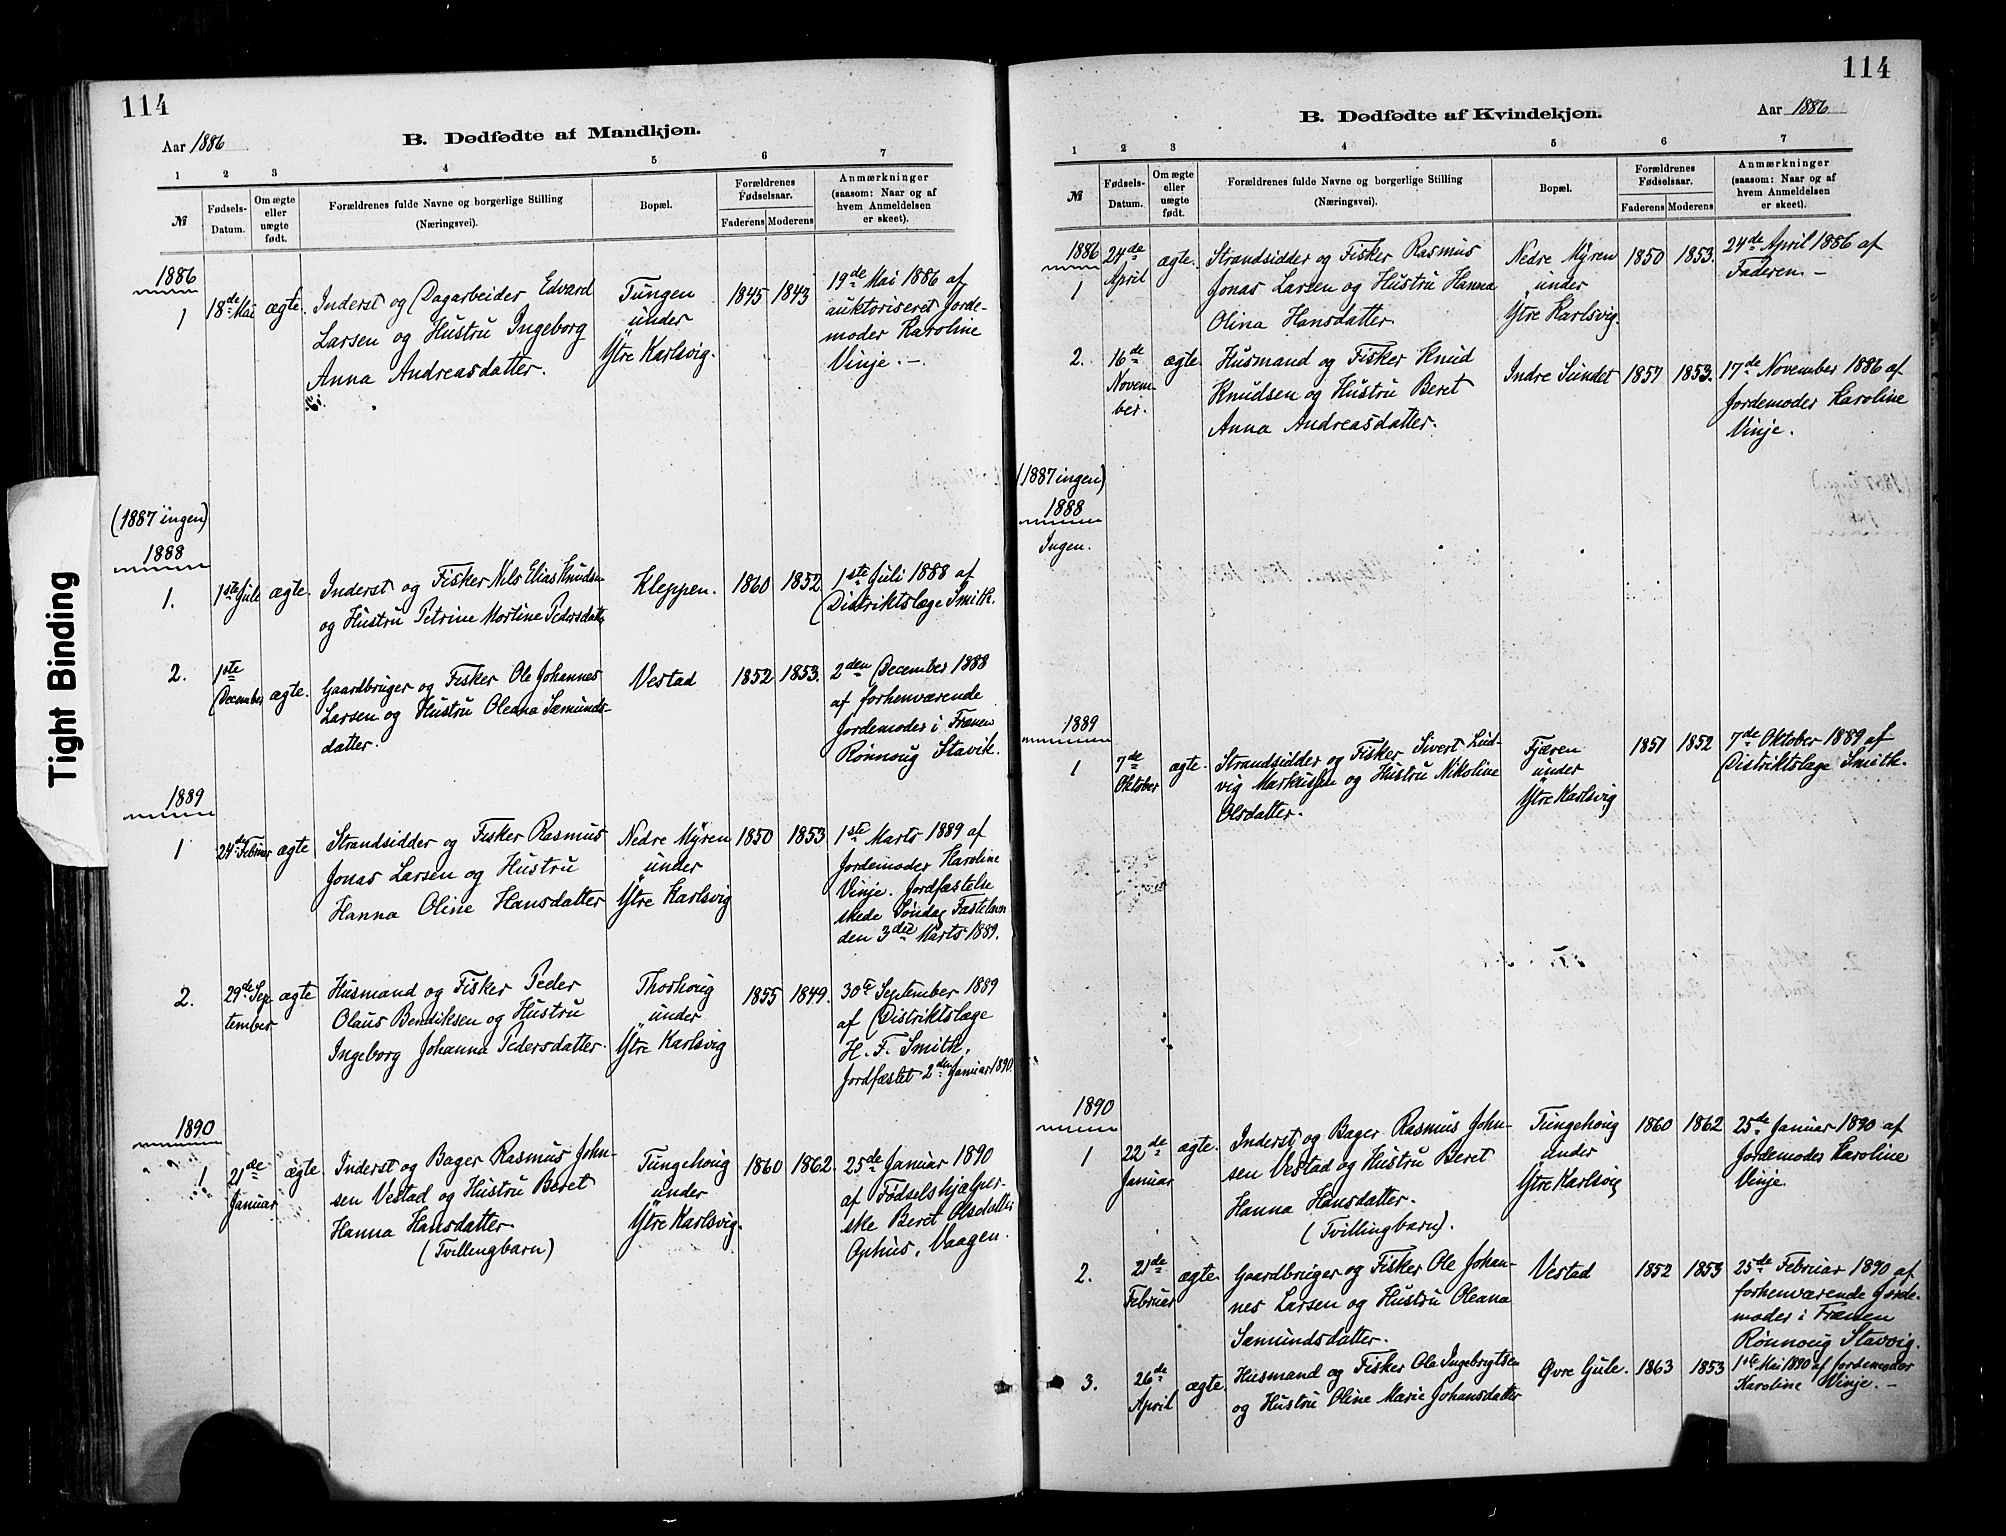 114
Aar 1886
B. Dødfødte af Mandkjøn.
1 2 3 4 5 6 7
№
Fødsels-
Datum.
Om ægte
eller
uægte
født.
Forældrenes fulde Navne og borgerlige Stilling
(Næringsvei).
Bopæl.
Forældrenes
Fødselsaar.
Faderens Moderens
Anmærkninger
(saasom: Naar og af
hvem Anmeldelsen
er skeet).
1886
1
18de Mai
ægte.
Inderst og Dagarbeider Edvard
Larsen og Hustru Ingeborg
Anna Andreasdatter.
Tungen
under
Ytre Karlsvig.
1845 1843
19de Mai 1886 af
auktoriseret Jorde-
moder Karoline
Vinje. —
(1887 ingen)
1888
1.
1ste Juli
ægte.
Inderst og Fisker Nils Elias Knudsen
og Hustru Petrine Martine Pedersdatter
Kleppen.
1860 1852
1ste Juli 1888 af
Distriktslæge Smith.
2.
1ste
December
ægte.
Gaardbruger og Fisker Ole Johannes
Larsen og Hustru Oleana Sæmunds-
datter.
Vestad
1852 1853.
2den December 1888
af forhenværende
Jordemoder i Frænen
Rønnoug Stavik.
1889
1
24de Februar
ægte
Strandsidder og Fisker Rasmus
Jonas Larsen og Hustru
Hanna Oline Hansdatter
Nedre Myren
under
Ytre Karlsvig
1850 1853
1ste Marts 1889 af
Jordemoder Karoline
Vinje. Jordfæstelse
skede Søndag Fastelavn
den 3die Marts 1889.
2.
29de Sep
tember
ægte
Husmand og Fisker Peder
Olaus Bendiksen og Hustru
Ingeborg Johanna Pedersdatter.
Thorhoug
under
Ytre Karlsvig
1855 1849.
30te September 1889
af Distriktslæge
H. F. Smith.
Jordfæstet 2den Januar 1890.
1890
1
21de
Januar
ægte
Inderst og Bager Rasmus John-
sen Vestad og Hustru Beret
Hanna Hansdatter.
(Tvillingbarn)
Tungehoug
under
Ytre Karlsvig.
1860 1862.
25de Januar 1890
af Fødselshjælper-
ske Beret Olsdatter
Ophus, Vaagen.
114
Aar 1886
B. Dødfødte af Kvindekjøn.
1 2 3 4 5 6 7
№
Fødsels-
Datum.
Om ægte
eller
uægte
født.
Forældrenes fulde Navne og borgerlige Stilling
(Næringsvei).
Bopæl.
Forældrenes
Fødselsaar.
Faderens Moderens
Anmærkninger
(saasom: Naar og af
hvem Anmeldelsen
er skeet).
1886
1
24de
April
ægte.
Strandsidder og Fisker Rasmus
Jonas Larsen og Hustru Hanna
Olina Hansdatter.
Nedre Myren
under
Ytre Karlsvig.
1850 1853.
24de April 1886 af
Faderen. —
2.
16de
Novem-
ber.
ægte
Husmand og Fisker Knud
Knudsen og Hustru Beret
Anna Andreasdatter.
Indre Sundet
1857 1853.
17de November 1886 af
Jordemoder Karoline
Vinje.
(1887 ingen)
1888
Ingen.
1889
1
7de
Oktober
ægte.
Strandsidder og Fisker Sivert Lud-
vig Markussen og Hustru Nikoline
Olsdatter.
Fjæren
under
Ytre Karlsvig
1851 1852
7de Oktober 1889 af
Distriktslæge Smith.
1890
1
22de
Januar
ægte.
Inderst og Bager Rasmus John-
sen Vestad og Hustru Beret
Hanna Hansdatter.
(Tvillingbarn).
Tungehoug
under
Ytre Karlsvig
1860 1862
25de Januar 1890 af
Jordemoder Karoline
Vinje.
2.
21de
Februar
ægte.
Gaardbruger og Fisker Ole Johan-
nes Larsen og Hustru Oleana
Sæmundsdatter.
Vestad
1852 1853
25de Februar 1890 af
forhenværende Jorde-
moder i Frænen
Rønnoug Stavvig.
3.
26de
April
ægte.
Husmand og Fisker Ole Ingebrigtsen
og Hustru Oline Marie Johansdatter
Øvre Gule.
1863 1853
1ste Mai 1890 af Jordemoder
Karoline Vinje. —
Tight Binding